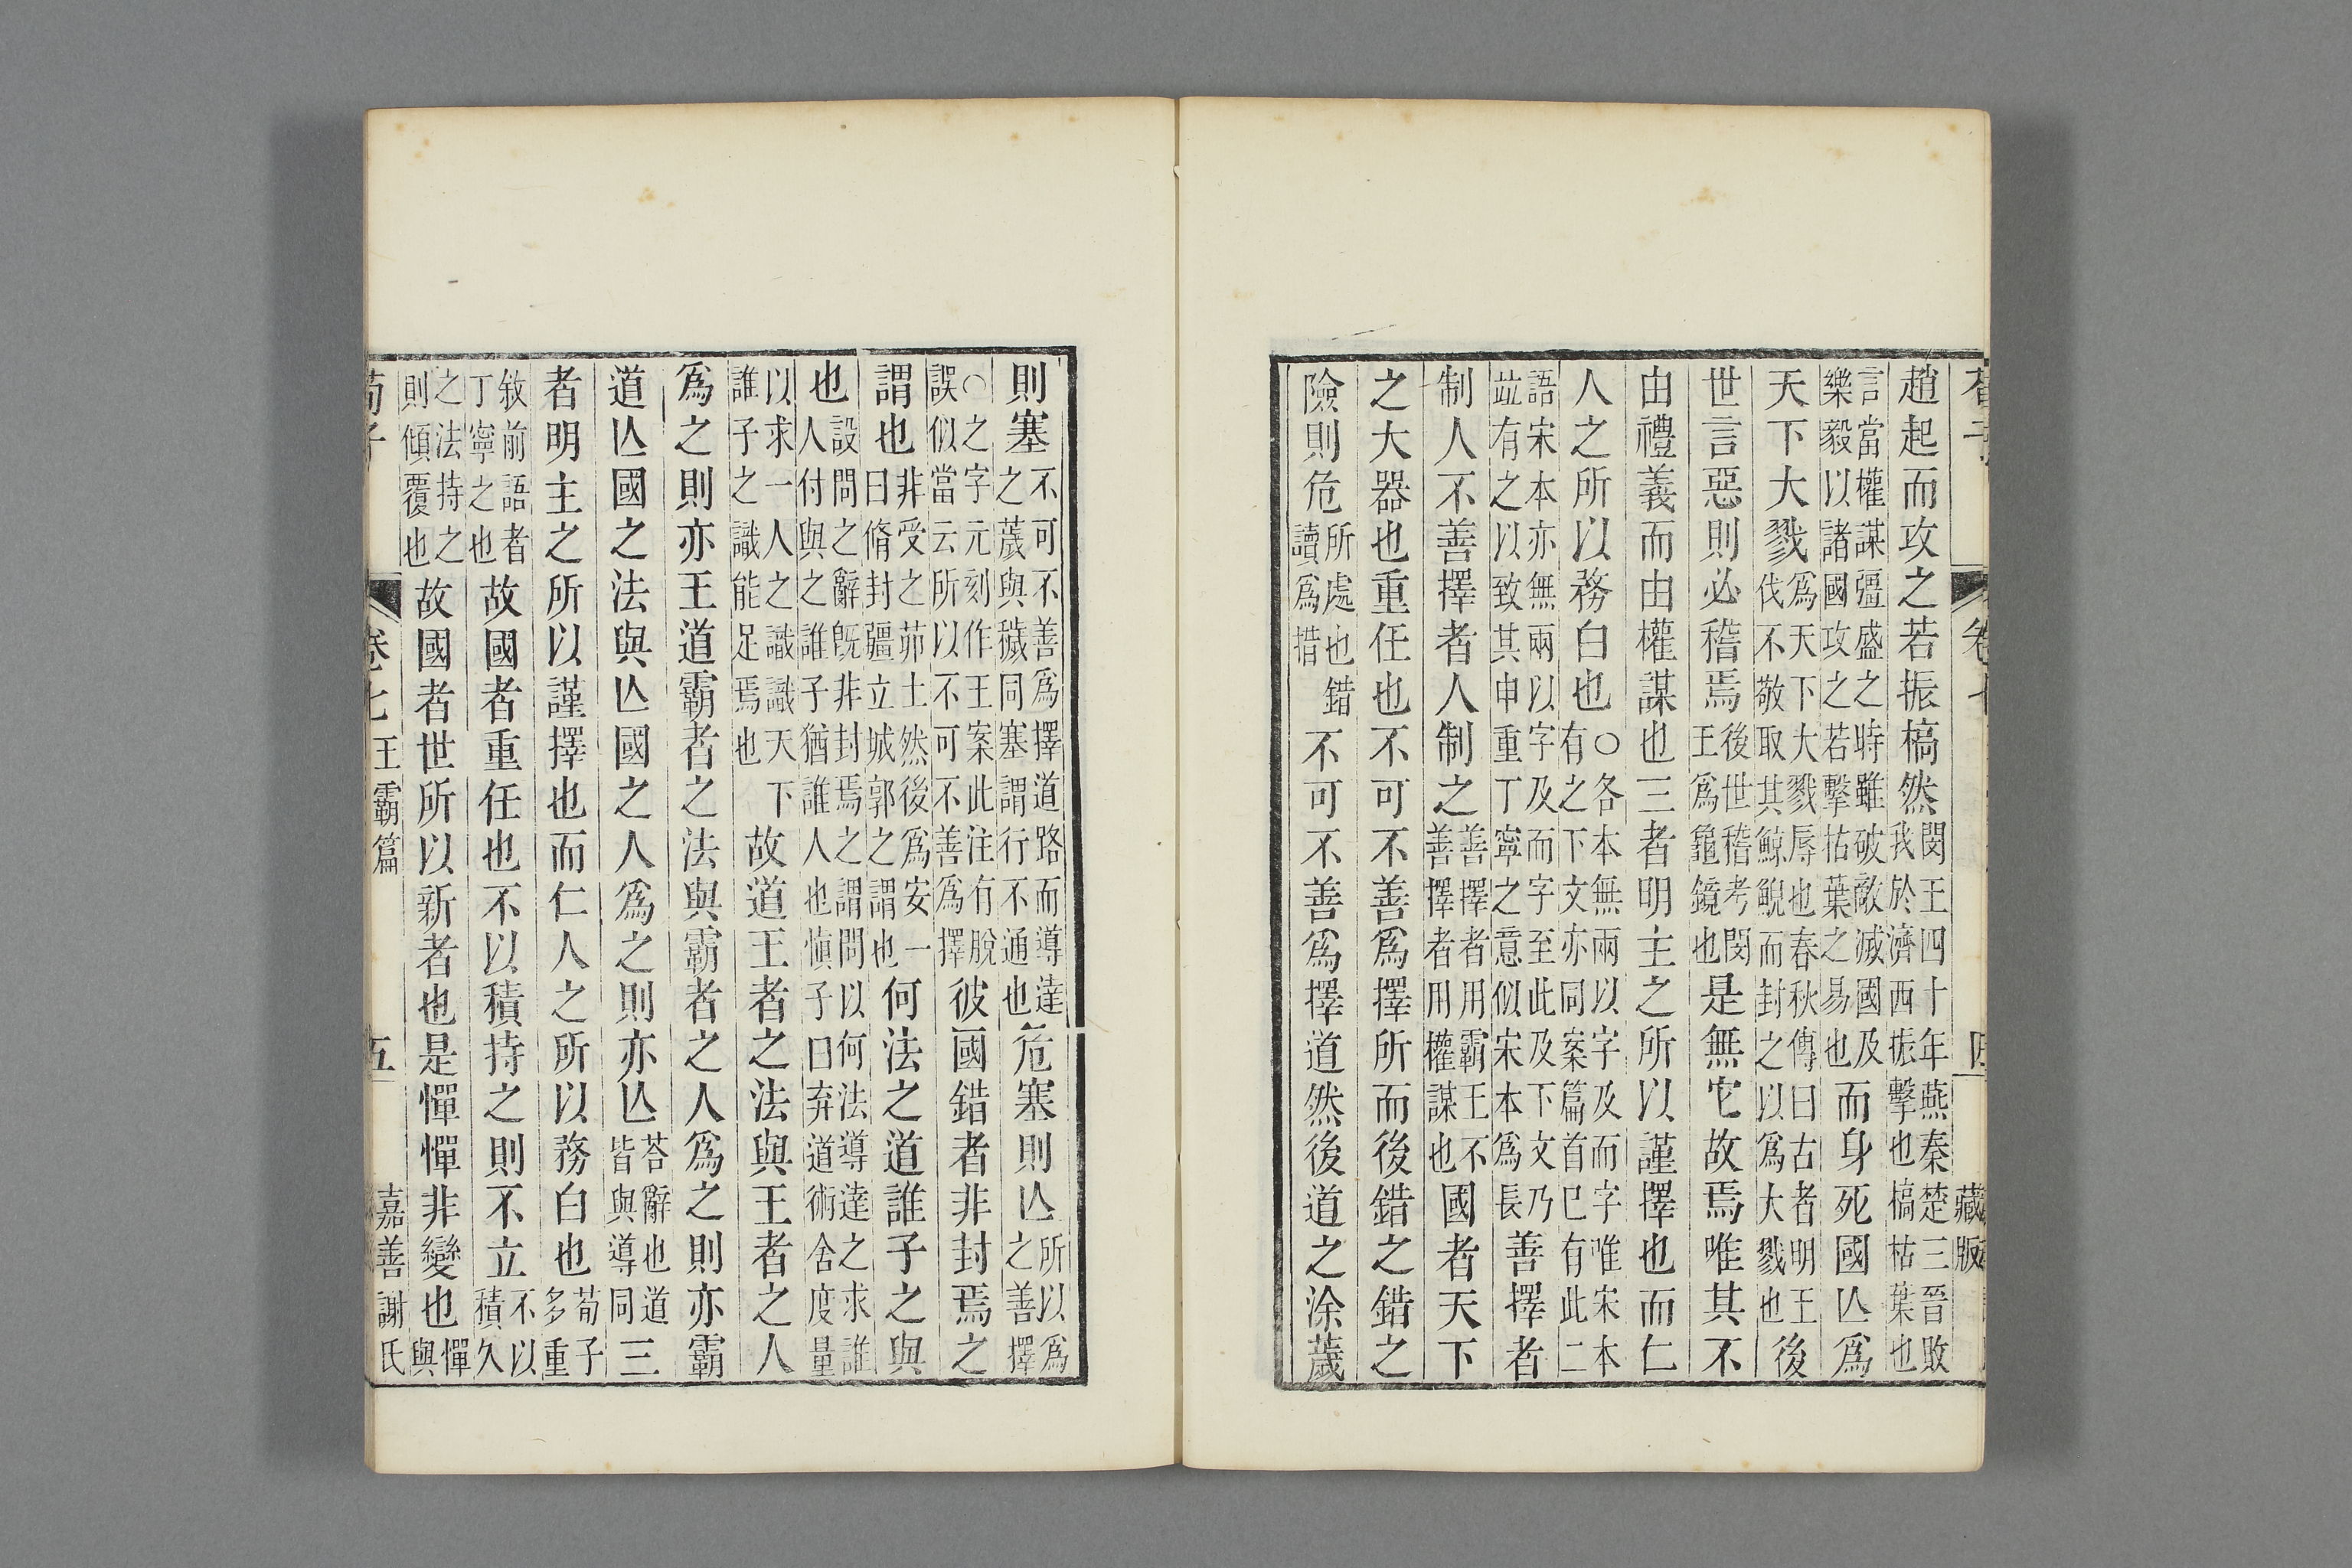 藏版
趙起而攻之若振槁然閔王四十年燕秦楚三晉敗我於濟西振擊也槁枯葉也
言當權謀彊盛之時雖破敵滅國及樂毅以諸國攻之若擊枯葉之易也而身死國亾爲
天下大戮爲天下大戮辱也春秋傳曰古者明王伐不敬取其鯨鯢而封之以爲大戮也後
世言惡則必稽焉後世稽考閔王爲龜鏡也是無它故焉唯其不
由禮義而由權謀也三者明主之所以謹擇也而仁
人之所以務白也○各本無兩以字及而字唯宋本有之下文亦同案篇首已有此二
語宋本亦無兩以字及而字至此及下文乃竝有之以致其申重丁寧之意似宋本爲長善擇者
制人不善擇者人制之善擇者用霸王不善擇者用權謀也國者天下
之大器也重任也不可不善爲擇所而後錯之錯之
險則危所處也錯讀爲措不可不善爲擇道然後道之涂薉
則塞不可不善爲擇道路而導達之薉與穢同塞謂行不通也危塞則亾所以爲之善擇
○之字元刻作王案此注有脫誤似當云所以不可不善爲擇彼國錯者非封焉之
謂也非受之茆土然後爲安一曰脩封疆立城郭之謂也何法之道誰子之與
也設問之辭旣非封焉之謂問以何法導達之求誰人付與之誰子猶誰人也愼子曰弃道術舍度量
以求一人之識識天下誰子之識能足焉也故道王者之法與王者之人
爲之則亦王道霸者之法與霸者之人爲之則亦霸
道亾國之法與亾國之人爲之則亦亾荅辭也道皆與導同三
者明主之所以謹擇也而仁人之所以務白也荀子多重
敘前語者丁寧之也故國者重任也不以積持之則不立不以積久
之法持之則傾覆也故國者世所以新者也是憚憚非變也憚與
荀子 卷七 王霸篇 五 嘉善謝氏